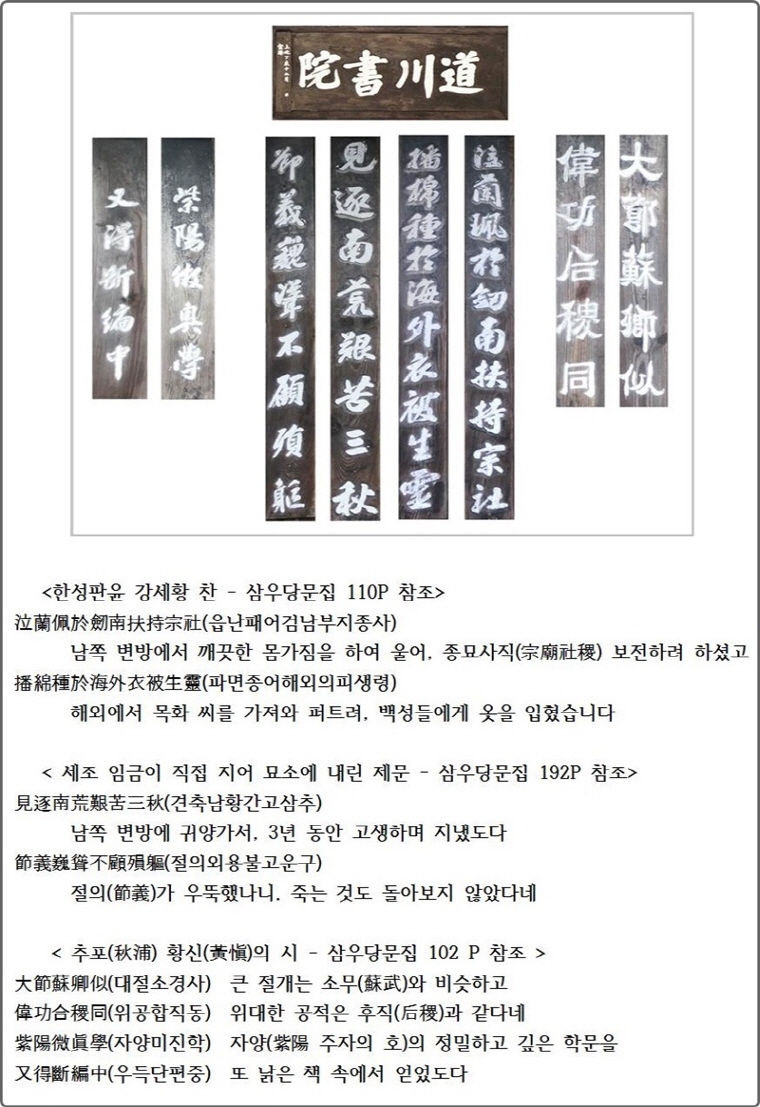 道川書院
大節蘇卿似
偉功后稷同
泣蘭珮於劒南扶持宗社
播棉種於海外衣被生靈
見逐南荒艱苦三秋
節義巍聳不顧殞軀
紫陽微奧學
又得斷編中
<한성판윤 강세황 찬 - 삼우당문집 110P 참조>
泣蘭佩於劒南扶持宗社(읍난패어검남부지종사)
남쪽 변방에서 깨끗한 몸가짐을 하여 울어, 종묘사직(宗廟社稷) 보전하려 하셨고
播綿種於海外衣被生靈(파면종어해외의피생령)
해외에서 목화 씨를 가져와 퍼트려, 백성들에게 옷을 입혔습니다
< 세조 임금이 직접 지어 묘소에 내린 제문 - 삼우당문집 192P 참조>
見逐南荒艱苦三秋(견축남황간고삼추)
남쪽 변방에 귀양가서, 3년 동안 고생하며 지냈도다
節義巍聳不顧殞軀(절의외용불고운구)
절의(節義)가 우뚝했나니, 죽는 것도 돌아보지 않았다네
< 추포(秋浦) 황신(黃愼)의 시 - 삼우당문집 102 P 참조 >
大節蘇卿似(대절소경사) 큰 절개는 소무(蘇武)와 비슷하고
偉功合稷同(위공합직동) 위대한 공적은 후직(后稷)과 같다네
紫陽微眞學(자양미진학) 자양(紫陽 주자의 호)의 정밀하고 깊은 학문을
又得斷編中(우득단편중) 또 낡은 책 속에서 얻었도다